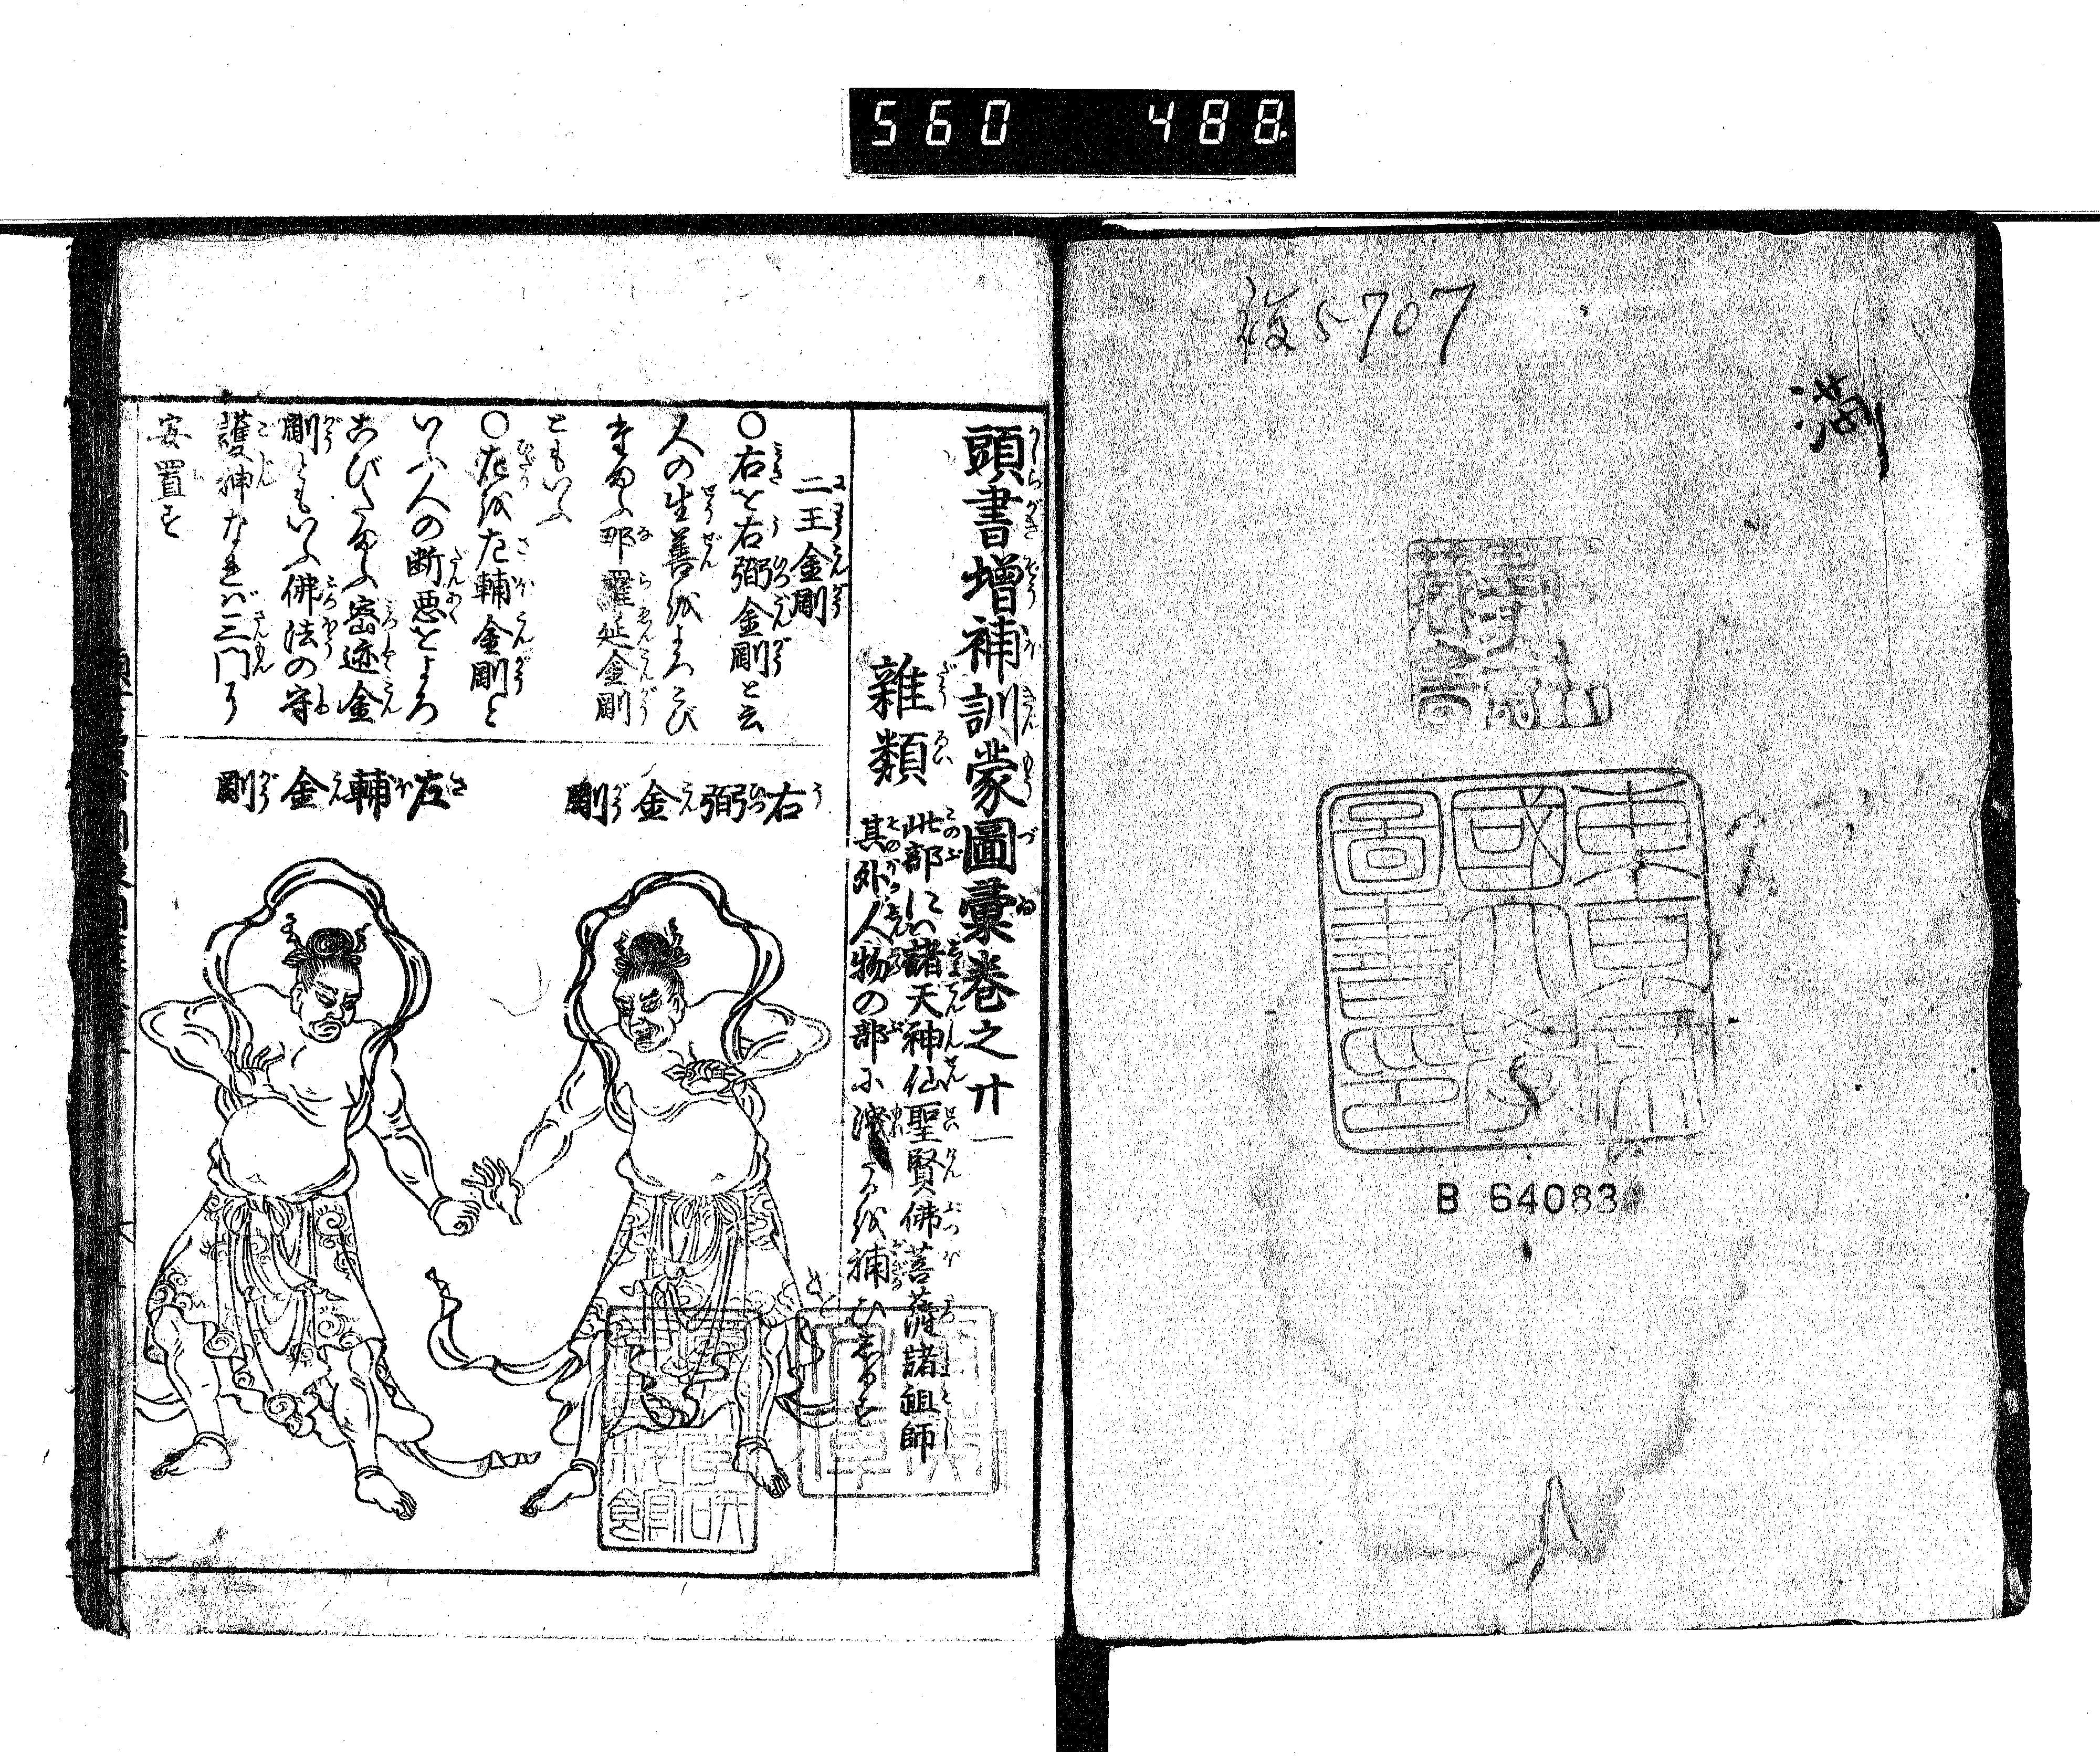 560 488
複5707
東京帝國大學圖書印
B 64083
頭書增補訓蒙圖彙巻之廿一
雜類
此部にハ諸天神仙聖賢佛菩薩諸祖師
其外人物の部に漏たるを補ひしるす
二王金剛
〇右を右弼金剛と云
人の生善をよろこび
たまふ那羅延金剛
ともいふ
〇左を左輔金剛と
いふ人の断悪をよろ
こびたまふ密迹金
剛ともいふ佛法の守
護神なれバ三門に
安置す
右弼金剛
左輔金剛